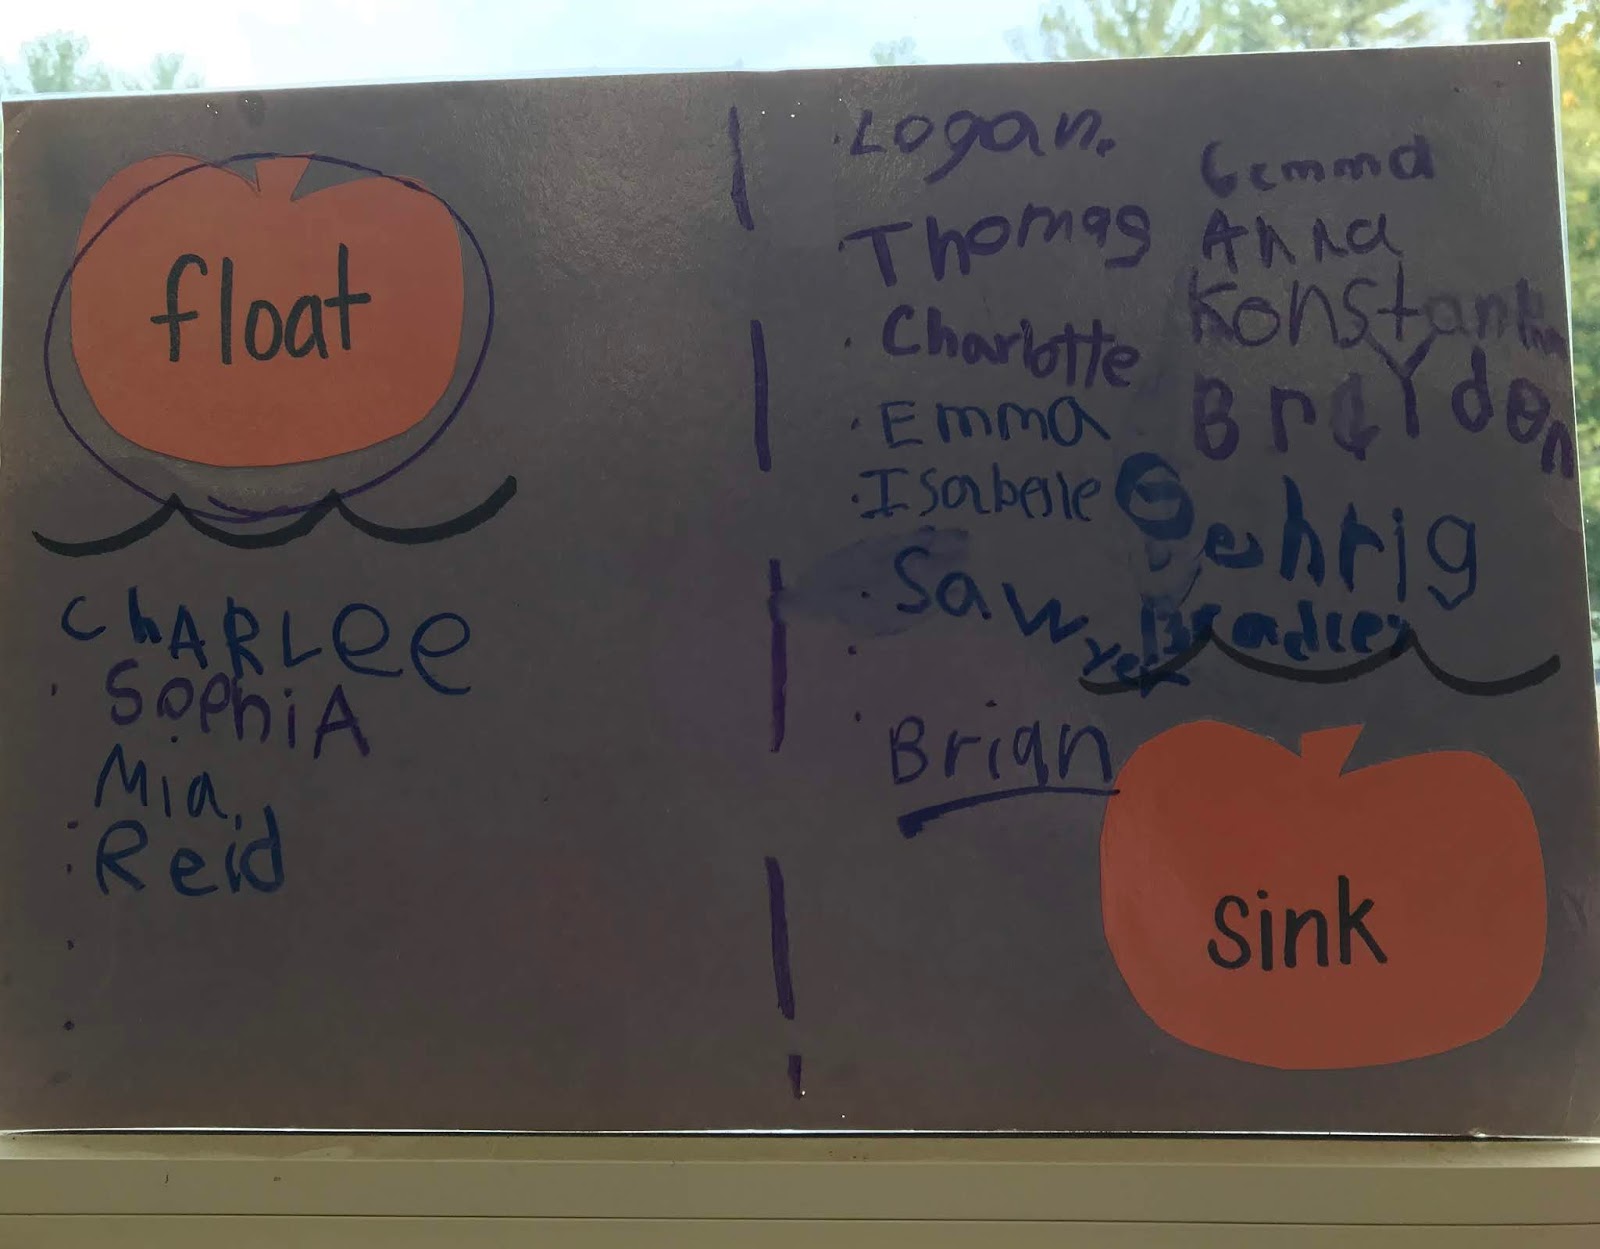 float
ChARLee
SophiA
Mia
Reid
Logan.
Thomas
Charlotte
Emma
Isabelle
Sawyer
Brian
Gemma
Anna
Konstantin
BraYden
Gehrig
Bradley
sink